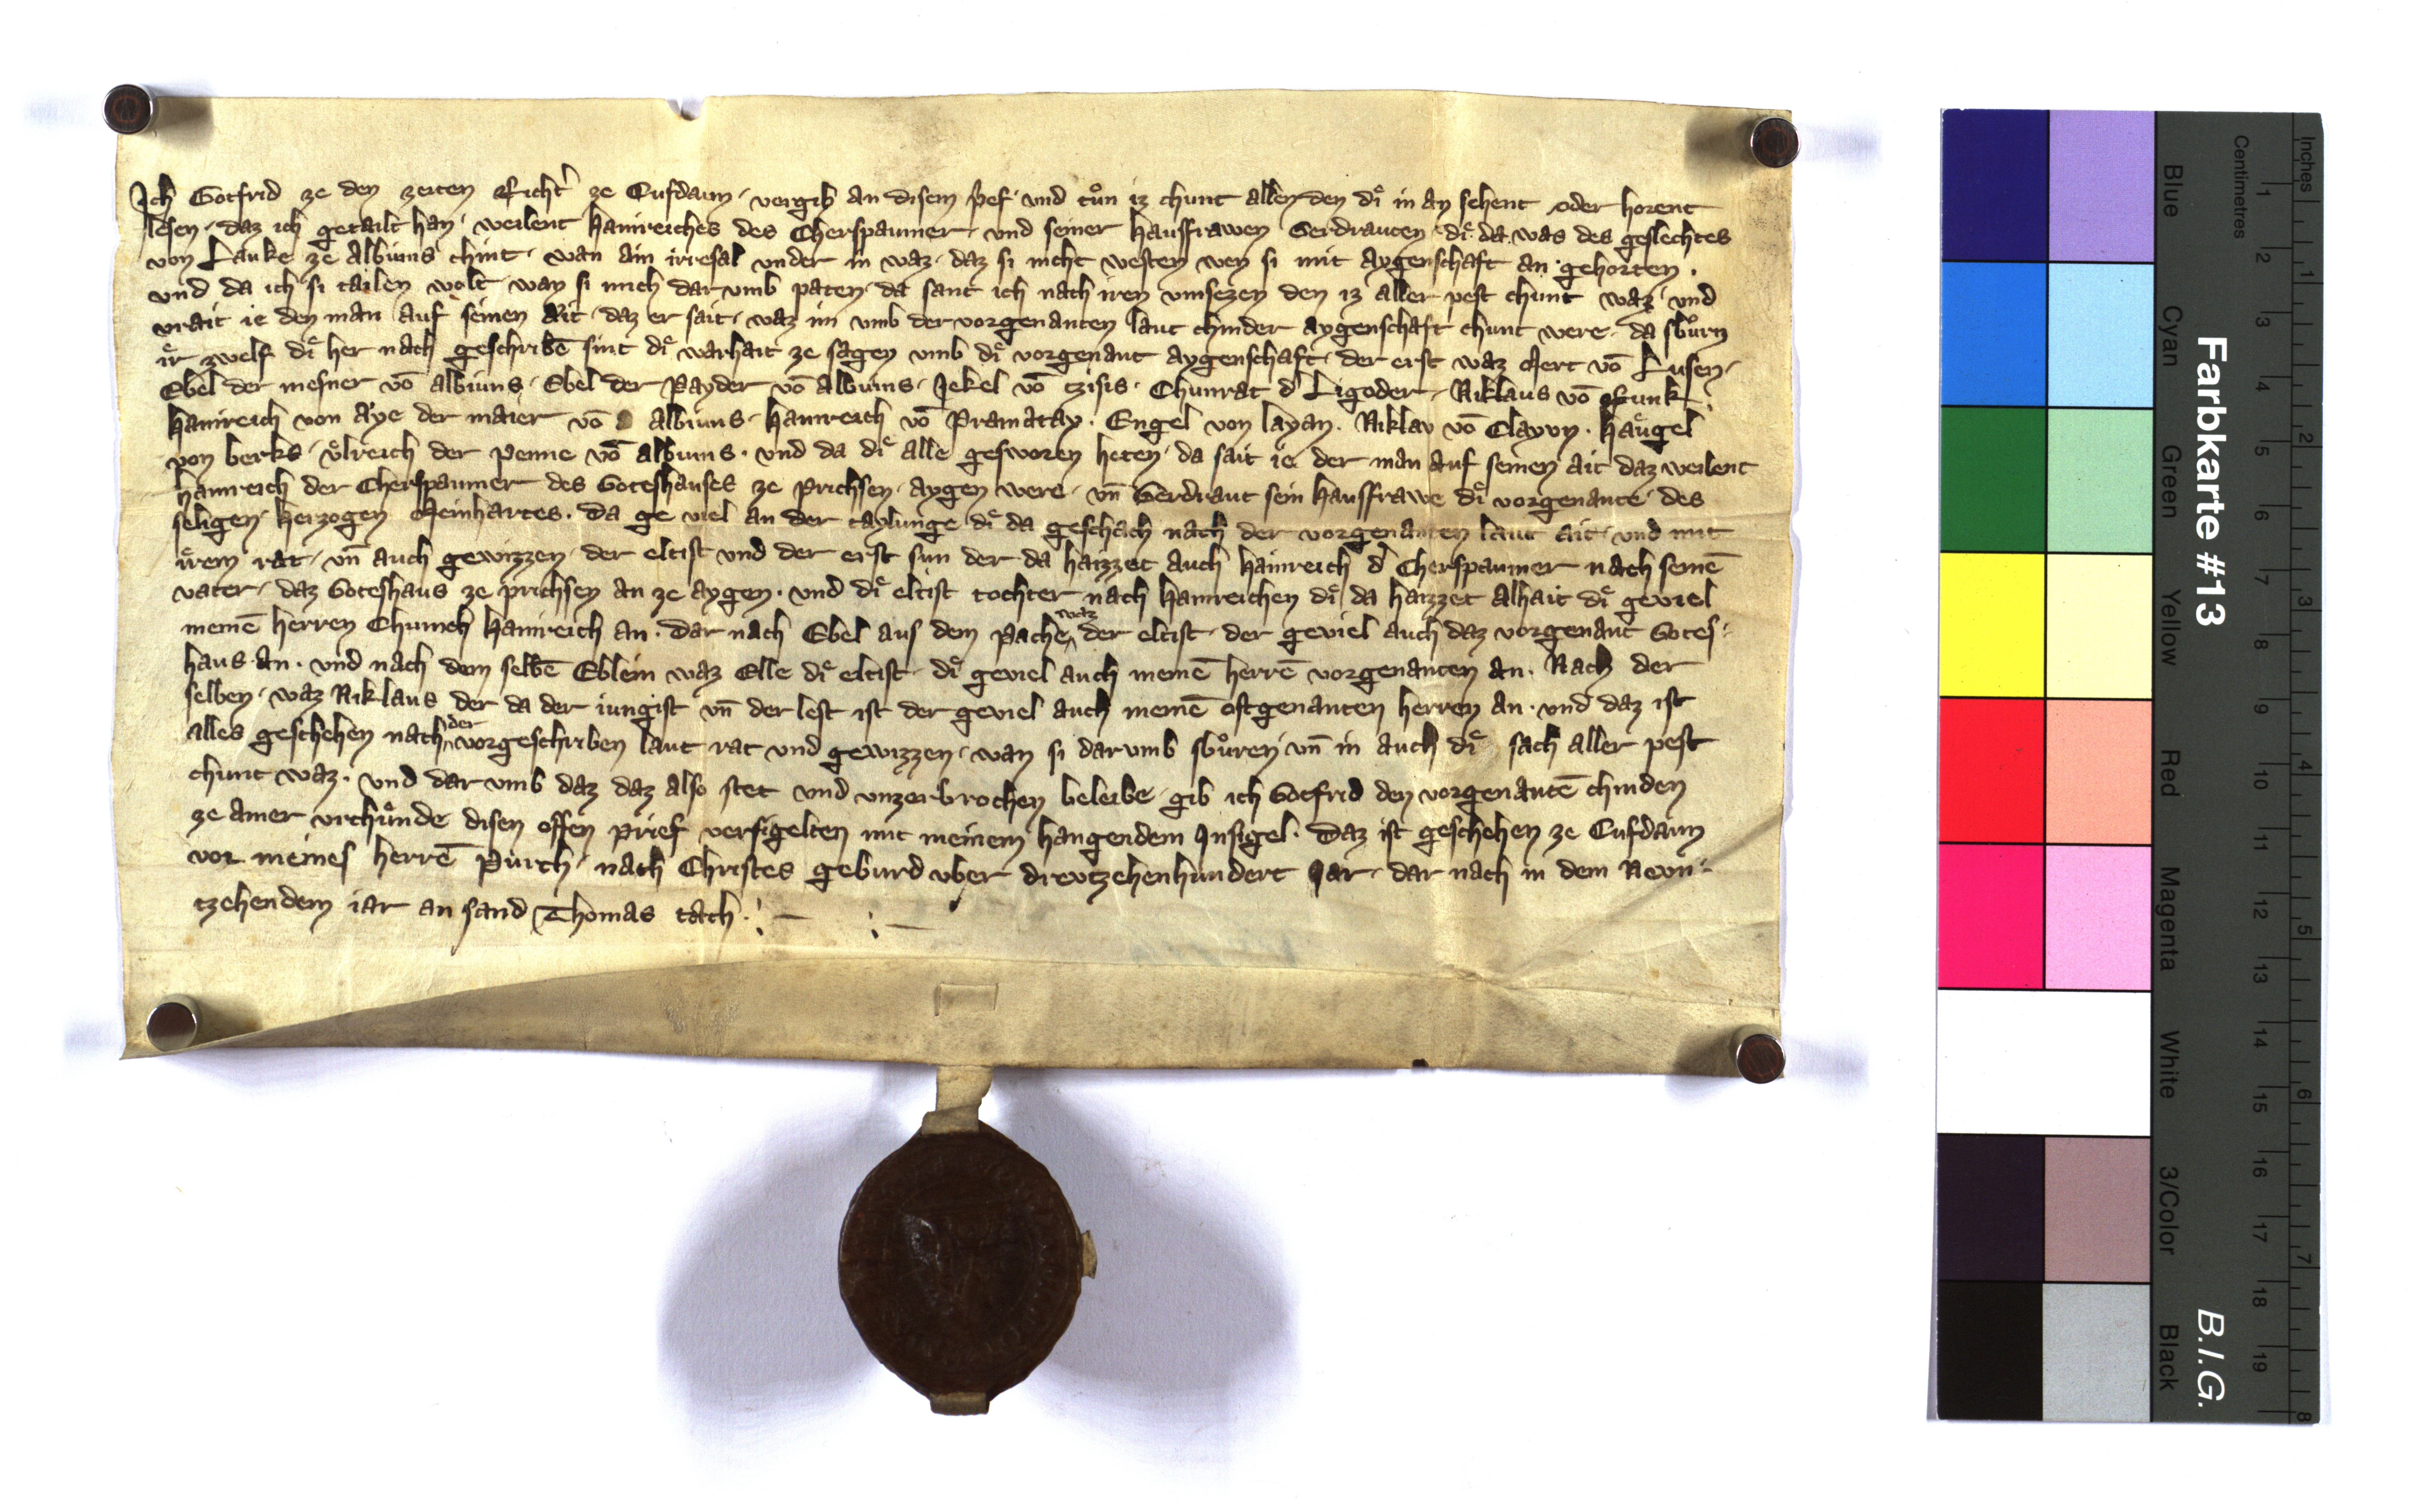 Ich Gotfrid ze den zeiten Richt' ze Cufdaun · vergib an disem pref · und tůn iz chunt allen den diͤ in an sehent oder horent
lesen · daz ich getailt han · weilent Hainreiches des Cherspaumer · und seiner hausfrawen Gerdrauten · diͤ da was des geslechtes
von Lauke ze Albiuns chint · wan ain irresal under in waz · daz si nicht westen wen si mit aygenschaft an gehorten ·
und da ich si tailen wolt · wan si mich dar umb paten · da sant ich nach iren umsezen den iz aller pest chunt waz · und
vrait ie den man auf seinen Ait · daz er sait · waz im umb der vorgenanten laut chinder aygenschaft chunt were · da sbůrn
iͤr zwelf diͤ her nach geschribē sint diͤ warhait ze sagen umb diͤ vorgenant aygenschaft · der erst waz Mert vō Lusen ·
Ebel der mesner vō albiuns · Ebel der Payder vō Albiuns · Jekel vō tzisis · Chunrat d' Ligoder · Niklaus vō Runk ·
Hainreich von Aye der maier vō Albiuns · Hainreich vō Pramatay · Engel von layan · Niklav vō Clayvn · Haͤugel
von berks · vͦlreich der Penne vō Albiuns · und da diͤ alle gesworen heten · da sait ie der man auf seinen ait daz weilent
Hainreich der Cherspaumer des Goteshauses ze Prichsen · aygen were · vn̄ Gerdraut sein hausfrawe diͤ vorgenante · des
seligen · herzogen Meinhartes · Da ge viel an der taylunge diͤ da geschach nach der vorgenanten laut ait · und mit
iͤrem rat · vn̄ auch gewizzen · der eltist und der erst sun der da haizzet auch Hainreich d' Cherspaumer nach seinē
vater · daz Goteshaus ze prichsen an ze aygen · und diͤ eltist tochter nach Hainreichen diͤ da haizzet Alhait diͤ geviel
meinē herren Chunich Hainreich an · Dar nach Ebel aus dem Pache waz der eltist · der geviel auch daz vorgenant Gotes-
haus an · und nach dem selbē Eblein waz Elle diͤ eltist · diͤ geviel auch meinē herrē vorgenanten an · Nach der
selben · waz Niklaus der da der iungist vn̄ der lest ist der geviel auch meinē oftgenanten herren an · und daz ist
alles geschehen nach der vorgeschriben laut rat und gewizzen · wan si darumb sbůren vn̄ in auch diͤ sach aller pest
chunt waz · und dar umb daz daz also stet und unzerbrochen beleibe · gib ich Gotfrid den vorgenantē chinden
ze ainer urchůnde disen offen prief versigelten mit meinem hangendem Insigel · Daz ist geschehen ze Cufdaun
vor meines herrē Purch · nach Christes geburd uber dreutzehenhundert Jar · dar nach in dem Neun-
tzehendem iar an sand Thomas tach ·
Farbkarte #13
B.I.G.
Centimetres
Inches
Blue
Cyan
Green
Yellow
Red
Magenta
White
3/Color
Black
1 2 3 4 5 6 7 8 9 10 11 12 13 14 15 16 17 18 19
1 2 3 4 5 6 7 8